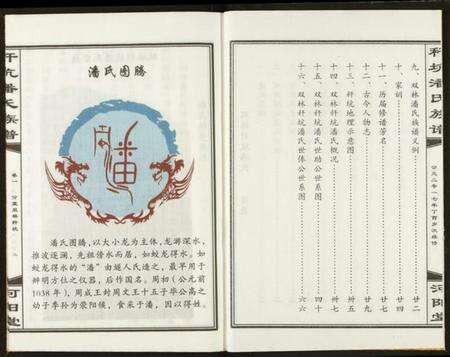 秆坑潘氏族谱
公元二零一七年丁酉岁次续修
河阳堂
九、双林潘氏族谱义例……廿二
十、家训……
十一、历届修谱芳名……
十二、古今人物志……廿九
十三、秆坑地理示意图……
十四、双林秆坑潘氏概况……
十五、双林秆坑潘氏世助公世系图……四十
十六、双林秆坑潘氏世保公世系图……六六
潘氏图腾
潘氏图腾，以大小龙为主体，龙游深水，
推波逐澜，先祖傍水而居，如蛟龙得水。如
蛟龙得水的“潘”由燧人氏造之，最早用于
辨明方位之仪器，后作国名。周初（公元前
1038年），周成王封周文王十五子毕公高之
幼子季孙为荥阳候，食采于潘，因以得姓。
秆坑潘氏族谱
卷一
河阳堂